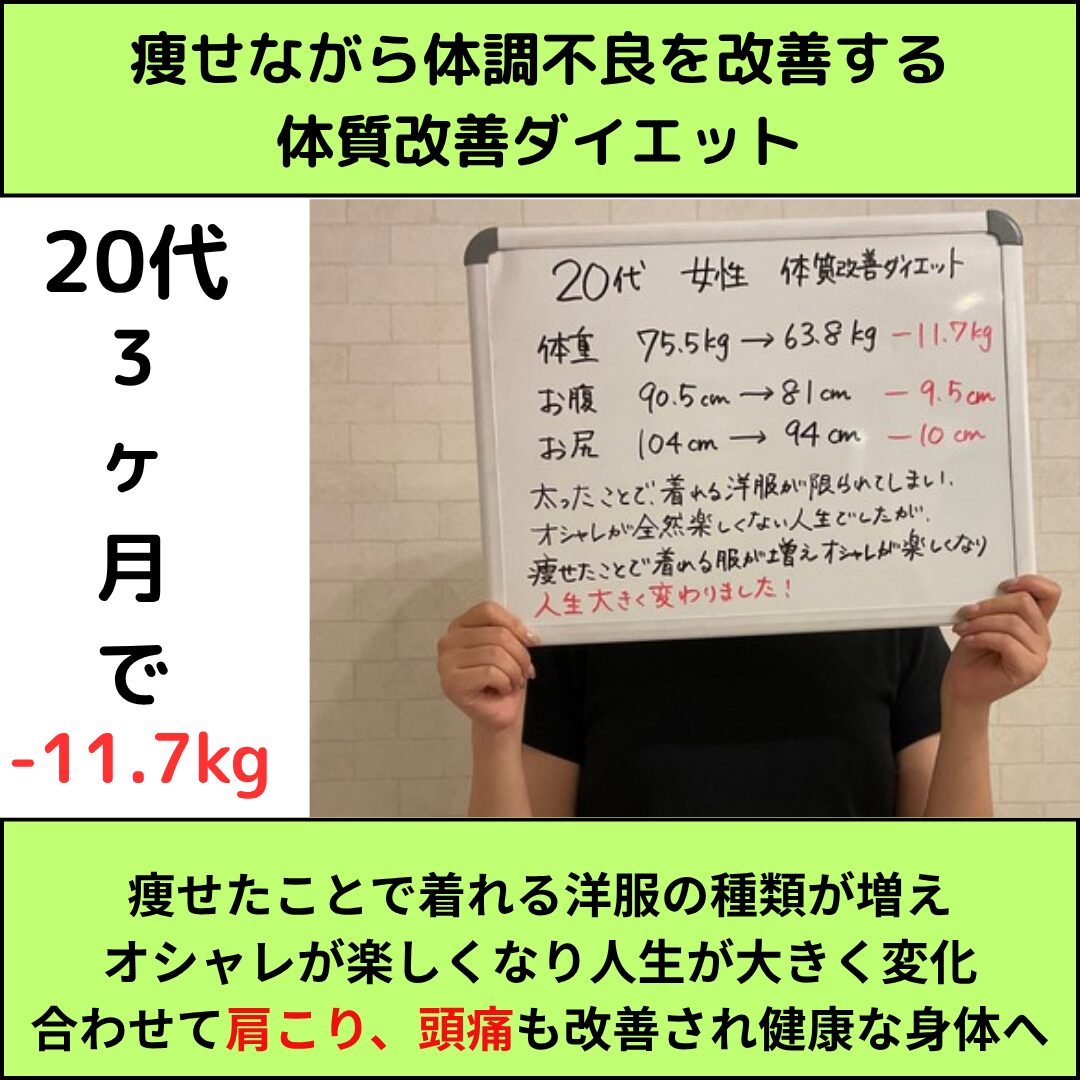 痩せながら体調不良を改善する
体質改善ダイエット
20代
3ヶ月で
-11.7kg
20代 女性 体質改善ダイエット
体重 75.5kg→63.8kg -11.7kg
お腹 90.5cm→81cm -9.5cm
お尻 104cm→94cm -10cm
太ったことで、着れる洋服が限られてしまい、
オシャレが全然楽しくない人生でしたが、
痩せたことで着れる服が増えオシャレが楽しくなり
人生大きく変わりました!
痩せたことで着れる洋服の種類が増え
オシャレが楽しくなり人生が大きく変化
合わせて肩こり、頭痛も改善され健康な身体へ